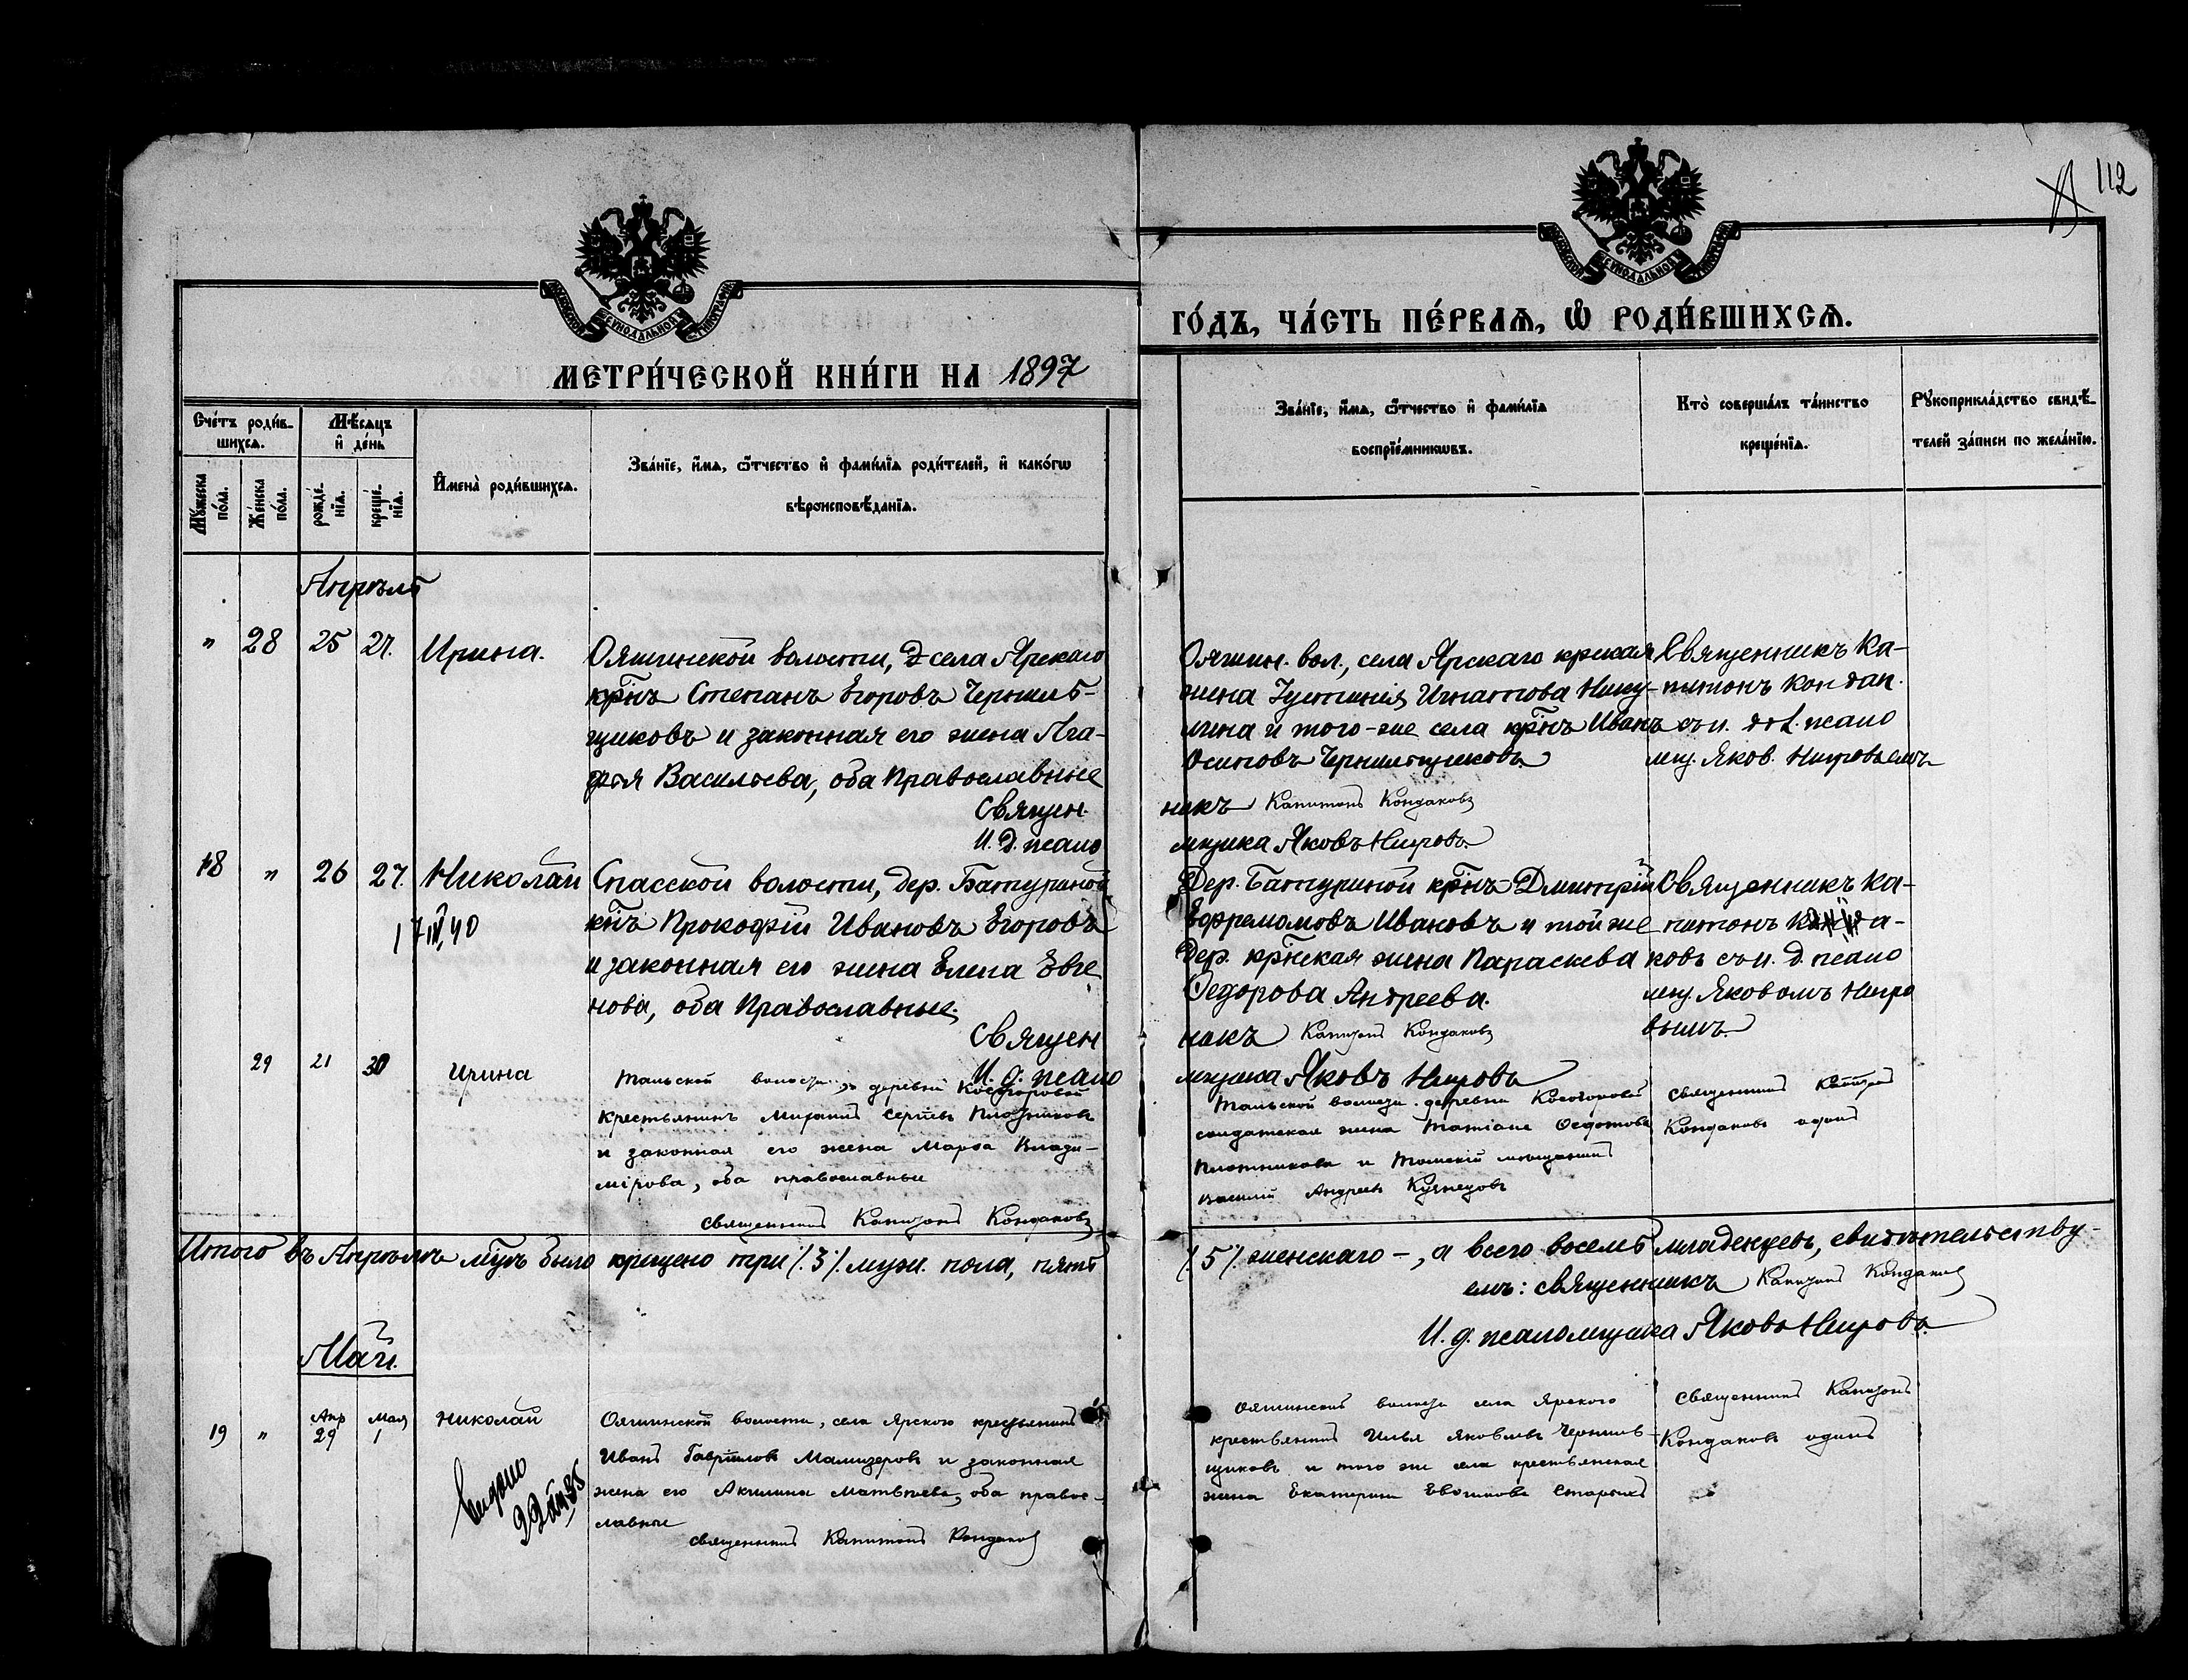 112
МЕТРИ́ЧЕСКОЙ КНИ́ГИ НА 1897
ГО́ДЪ, ЧА́СТЬ ПЕ́РВАЯ, Ѡ РОДИ́ВШИХСЯ.
Сче́тъ роди́в-
шихся.
Мѣ́сяцъ
и де́нь
Му́жеска
по́ла.
Же́нска
по́ла.
рожде́-
нія.
креще́-
нія.
Имена̀ роди́вшихся.
Зва́ніе, и́мя, ѻ҆́тчество и фами́лія роди́телей, и како́гѡ
вѣроисповѣ́данія.
Зва́ніе, и́мя, ѻ҆́тчество и фами́лія
воспріе́мниковъ.
Кто̀ соверша́лъ та́инство
креще́нія.
Рукоприкла́дство свидѣ́-
телей за́писи по жела́нію.
Апрѣль
" 28 25 27. Ирина.
Ояшинской волости, села Ярскаго
крнъ Степанъ Егоровъ Чернильб-
щиковъ и законная его жена Ага-
фья Васильева, оба Православные
Священ-
И. д. псало
Ояшин. вол., села Ярскаго крская
жена Іустинія Игнатова Нику-
лина и того-же села крнъ Иванъ
Осиповъ Чернильщиковъ
никъ Капитонъ Кондаковъ
мщика Яковъ
Священникъ Ка-
питонъ Кондак.
съ и. д. псало
мщ. Яков.
18 " 26 27. Николай
17 IV, 40
Спасской волости, дер. Батуриной
кнъ Прокофій Ивановъ Егоровъ
и законная его жена Елена Евге
нова, оба Православные.
Священ
И. д. псало
Дер. Батуриной крнъ Дмитрій
Ефремомовъ Ивановъ и той же
дер. крнская жена Параскева
Ѳедорова Андреева.
никъ Капитонъ Кондаковъ
мщика Яковъ
Священникъ Ка-
питонъ а-
ковъ съ и. д. псало
мщ. Яковомъ
вымъ
29 21 30 Ирина
Тальской волости деревни Косогоровой
крестьянинъ Сергѣевъ Плотниковъ
и законная его жена Марѳа Влади-
мірова, оба православные
священникъ Капитонъ Кондаковъ
Тальской волости деревни Косогоровой
солдатская жена Татіана Ѳедотова
Плотникова и Томскій мѣщанинъ
Василій Андреевъ Кузнецовъ
священникъ Капитонъ
Кондаковъ одинъ
Итого въ Апрѣлѣ мцѣ было крещено три /.3/. муж. пола, пять
/.5/. женскаго –, а всего восемь младенцевъ, свидѣтельству-
емъ: священникъ Капитонъ Кондаковъ
И. д. псаломщика Яковъ
Май.
19 " Апр 29 Мая 1 Николай
Выдано
Ояшинской волости, села Ярского крестьянинъ
Иванъ Гавриловъ и законная
жена его Акилина Матвѣева, оба право-
славные
священникъ Капитонъ Кондаковъ
Ояшинской волости села Ярского
крестьянинъ Илья Яковлевъ Чернильб-
щиковъ и того же села крестьянская
жена Екатерина Старыхъ
священникъ Капитонъ
Кондаковъ одинъ